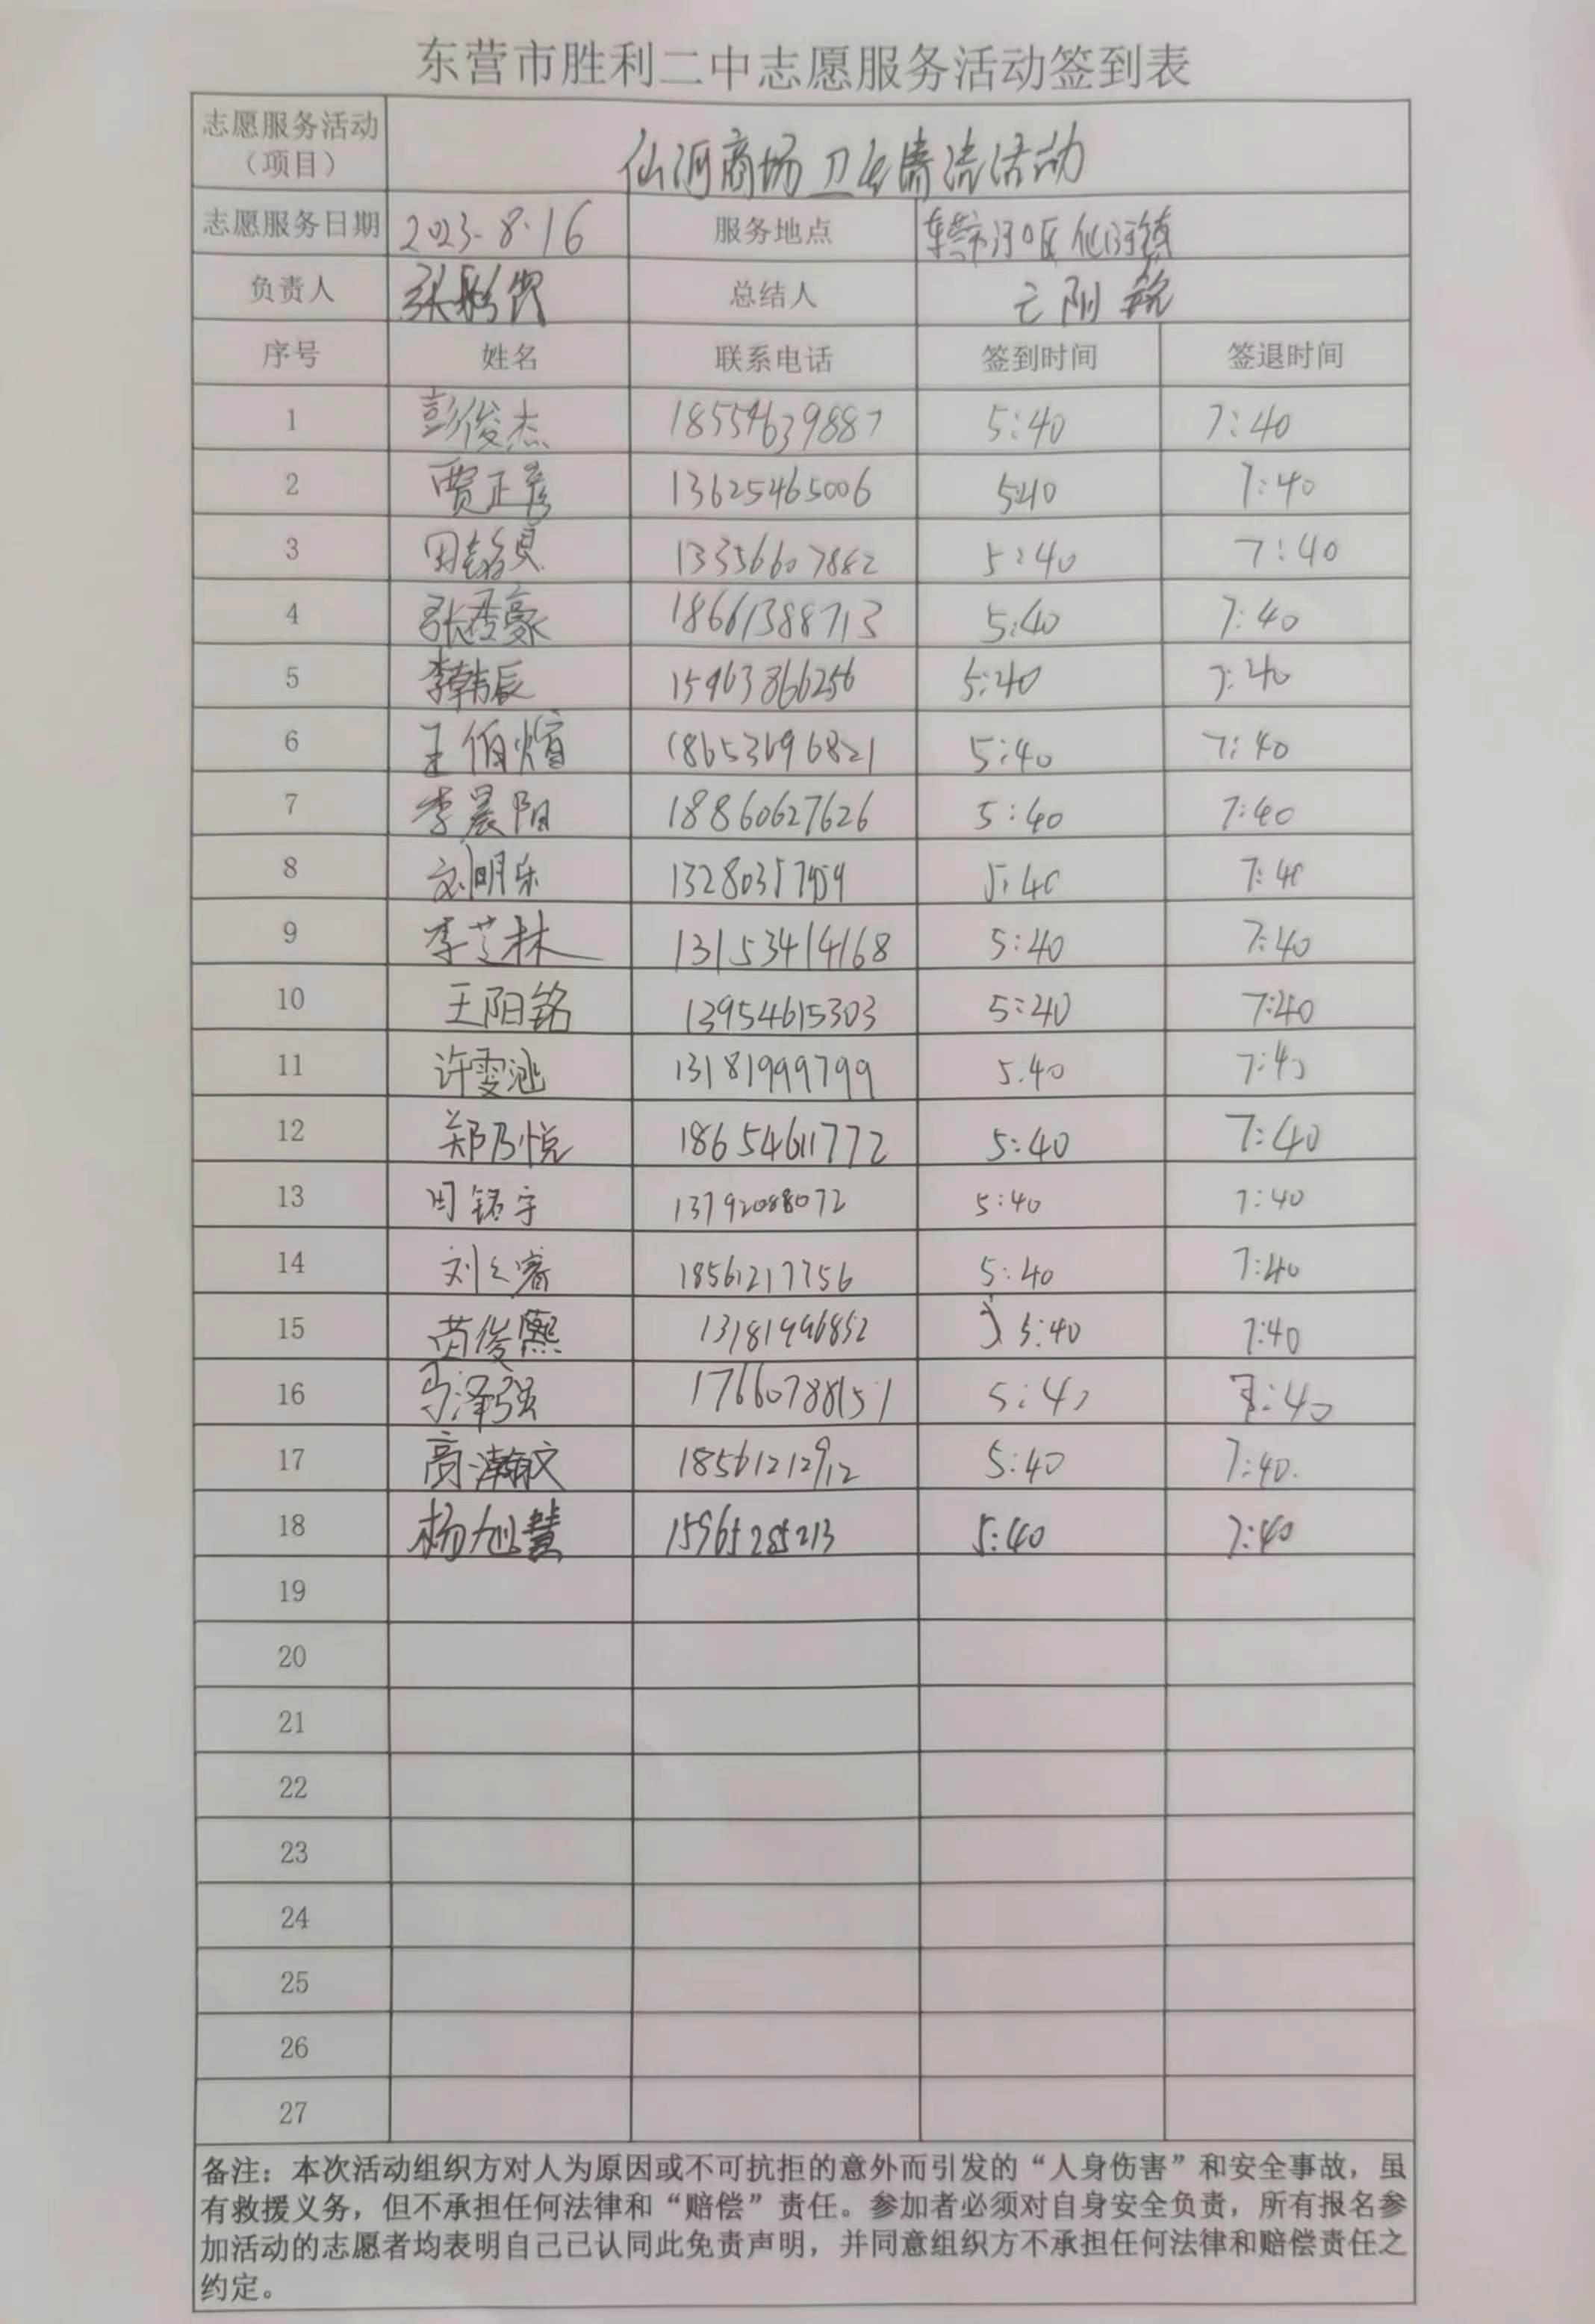 东营市胜利二中志愿服务活动签到表
志愿服务活动（项目） 仙河商场卫生清洁活动
志愿服务日期 2023.8.16 服务地点 东营市河口区仙河镇
负责人 总结人
序号 姓名 联系电话 签到时间 签退时间
1 彭俊杰 18554639887 5:40 7:40
2 贾正彦 13625465006 5:40 7:40
3 13356607882 5:40 7:40
4 18661388713 5:40 7:40
5 李韩辰 15963866256 5:40 7:40
6 王伯煊 18653696821 5:40 7:40
7 李晨阳 18860627626 5:40 7:40
8 刘明乐 5:40 7:40
9 李芝林 13153414168 5:40 7:40
10 王阳铭 13954615303 5:40 7:40
11 许雯涵 13181999799 5:40 7:40
12 郑乃悦 18654611772 5:40 7:40
13 周铭宇 13792088072 5:40 7:40
14 刘之睿 18561217756 5:40 7:40
15 13181996852 5:40 7:40
16 马泽强 17660788151 5:40 7:40
17 高瀚文 18561212912 5:40 7:40.
18 杨旭慧 15965285213 5:40 7:40
19
20
21
22
23
24
25
26
27
备注：本次活动组织方对人为原因或不可抗拒的意外而引发的“人身伤害”和安全事故，虽
有救援义务，但不承担任何法律和“赔偿”责任。参加者必须对自身安全负责，所有报名参
加活动的志愿者均表明自己已认同此免责声明，并同意组织方不承担任何法律和赔偿责任之
约定。